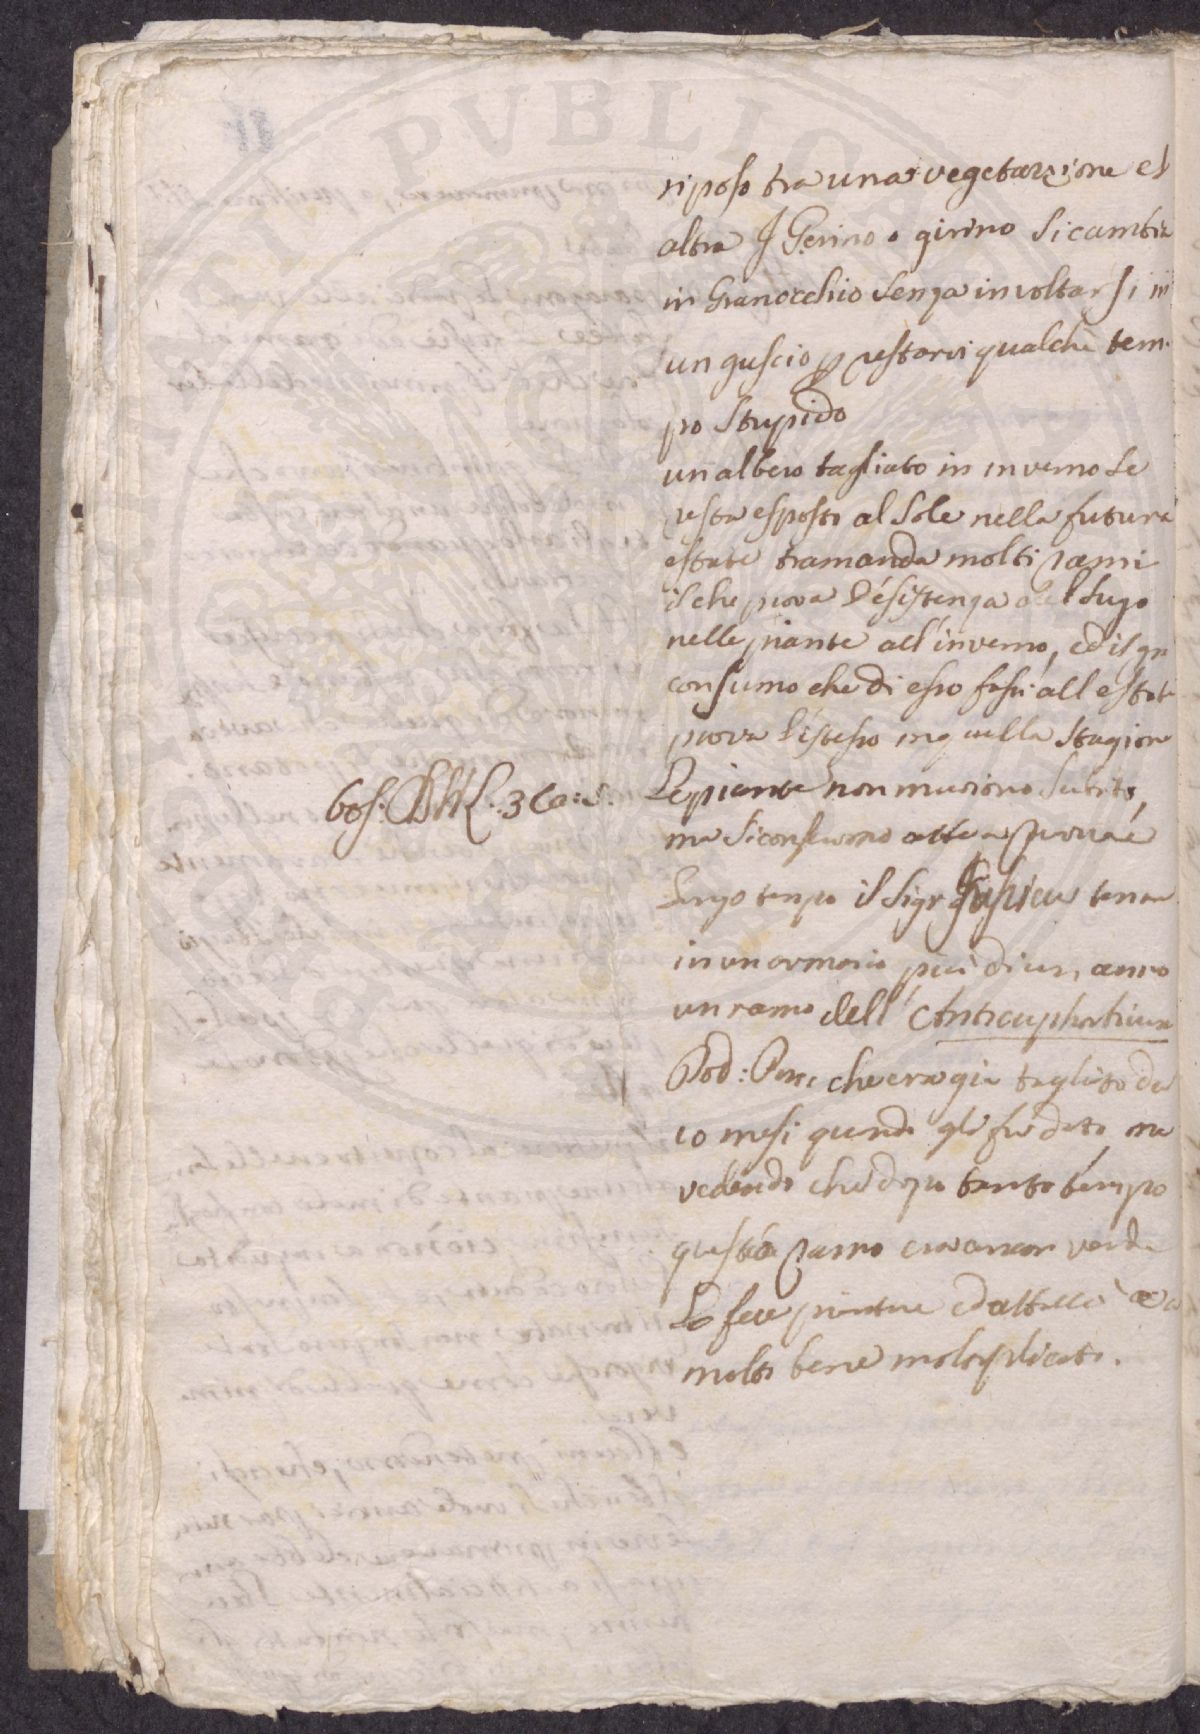 riposo tra una vegetazione el
altra Il Gerino o girino si cambia
in Granocchio senza involtarsi in
un guscio p restarvi qualche tem-
po stupido
un albero tagliato in inverno se
resta esposto al sole nella futura
estate tramanda molti rami
il che prova l'esistenza del sugo
nelle piante all'inverno, ed il gn
consumo che di esso fassi all estate
prova l'istesso in quella stagione
Le piante non muoiono subito,
ma si conservono
Lungo tempo il Sigr tenne
in un armario più di un anno
un ramo dell'
che era gia tagliato da
10 mesi quando gli fu dato, ma
vedendo che dopo tanto tempo
questo ramo era ancor verde
Lo fece piantare ed
molto bene moltiplicato.